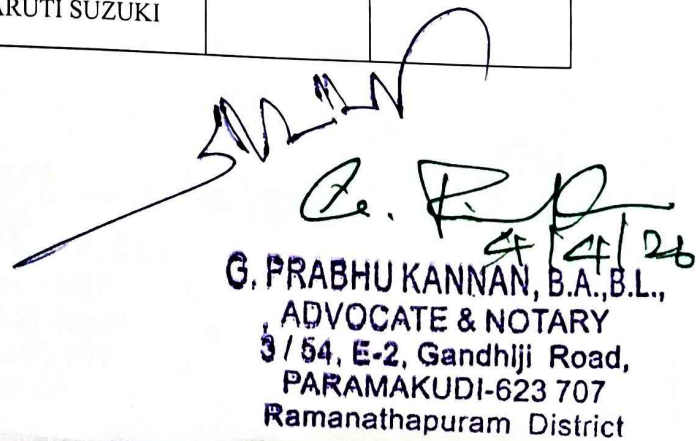 MARUTI SUZUKI
G. P
4/4/26
G. PRABHU KANNAN, B.A.,B.L.,
, ADVOCATE & NOTARY
3 / 54, E-2, Gandhiji Road,
PARAMAKUDI-623 707
Ramanathapuram District